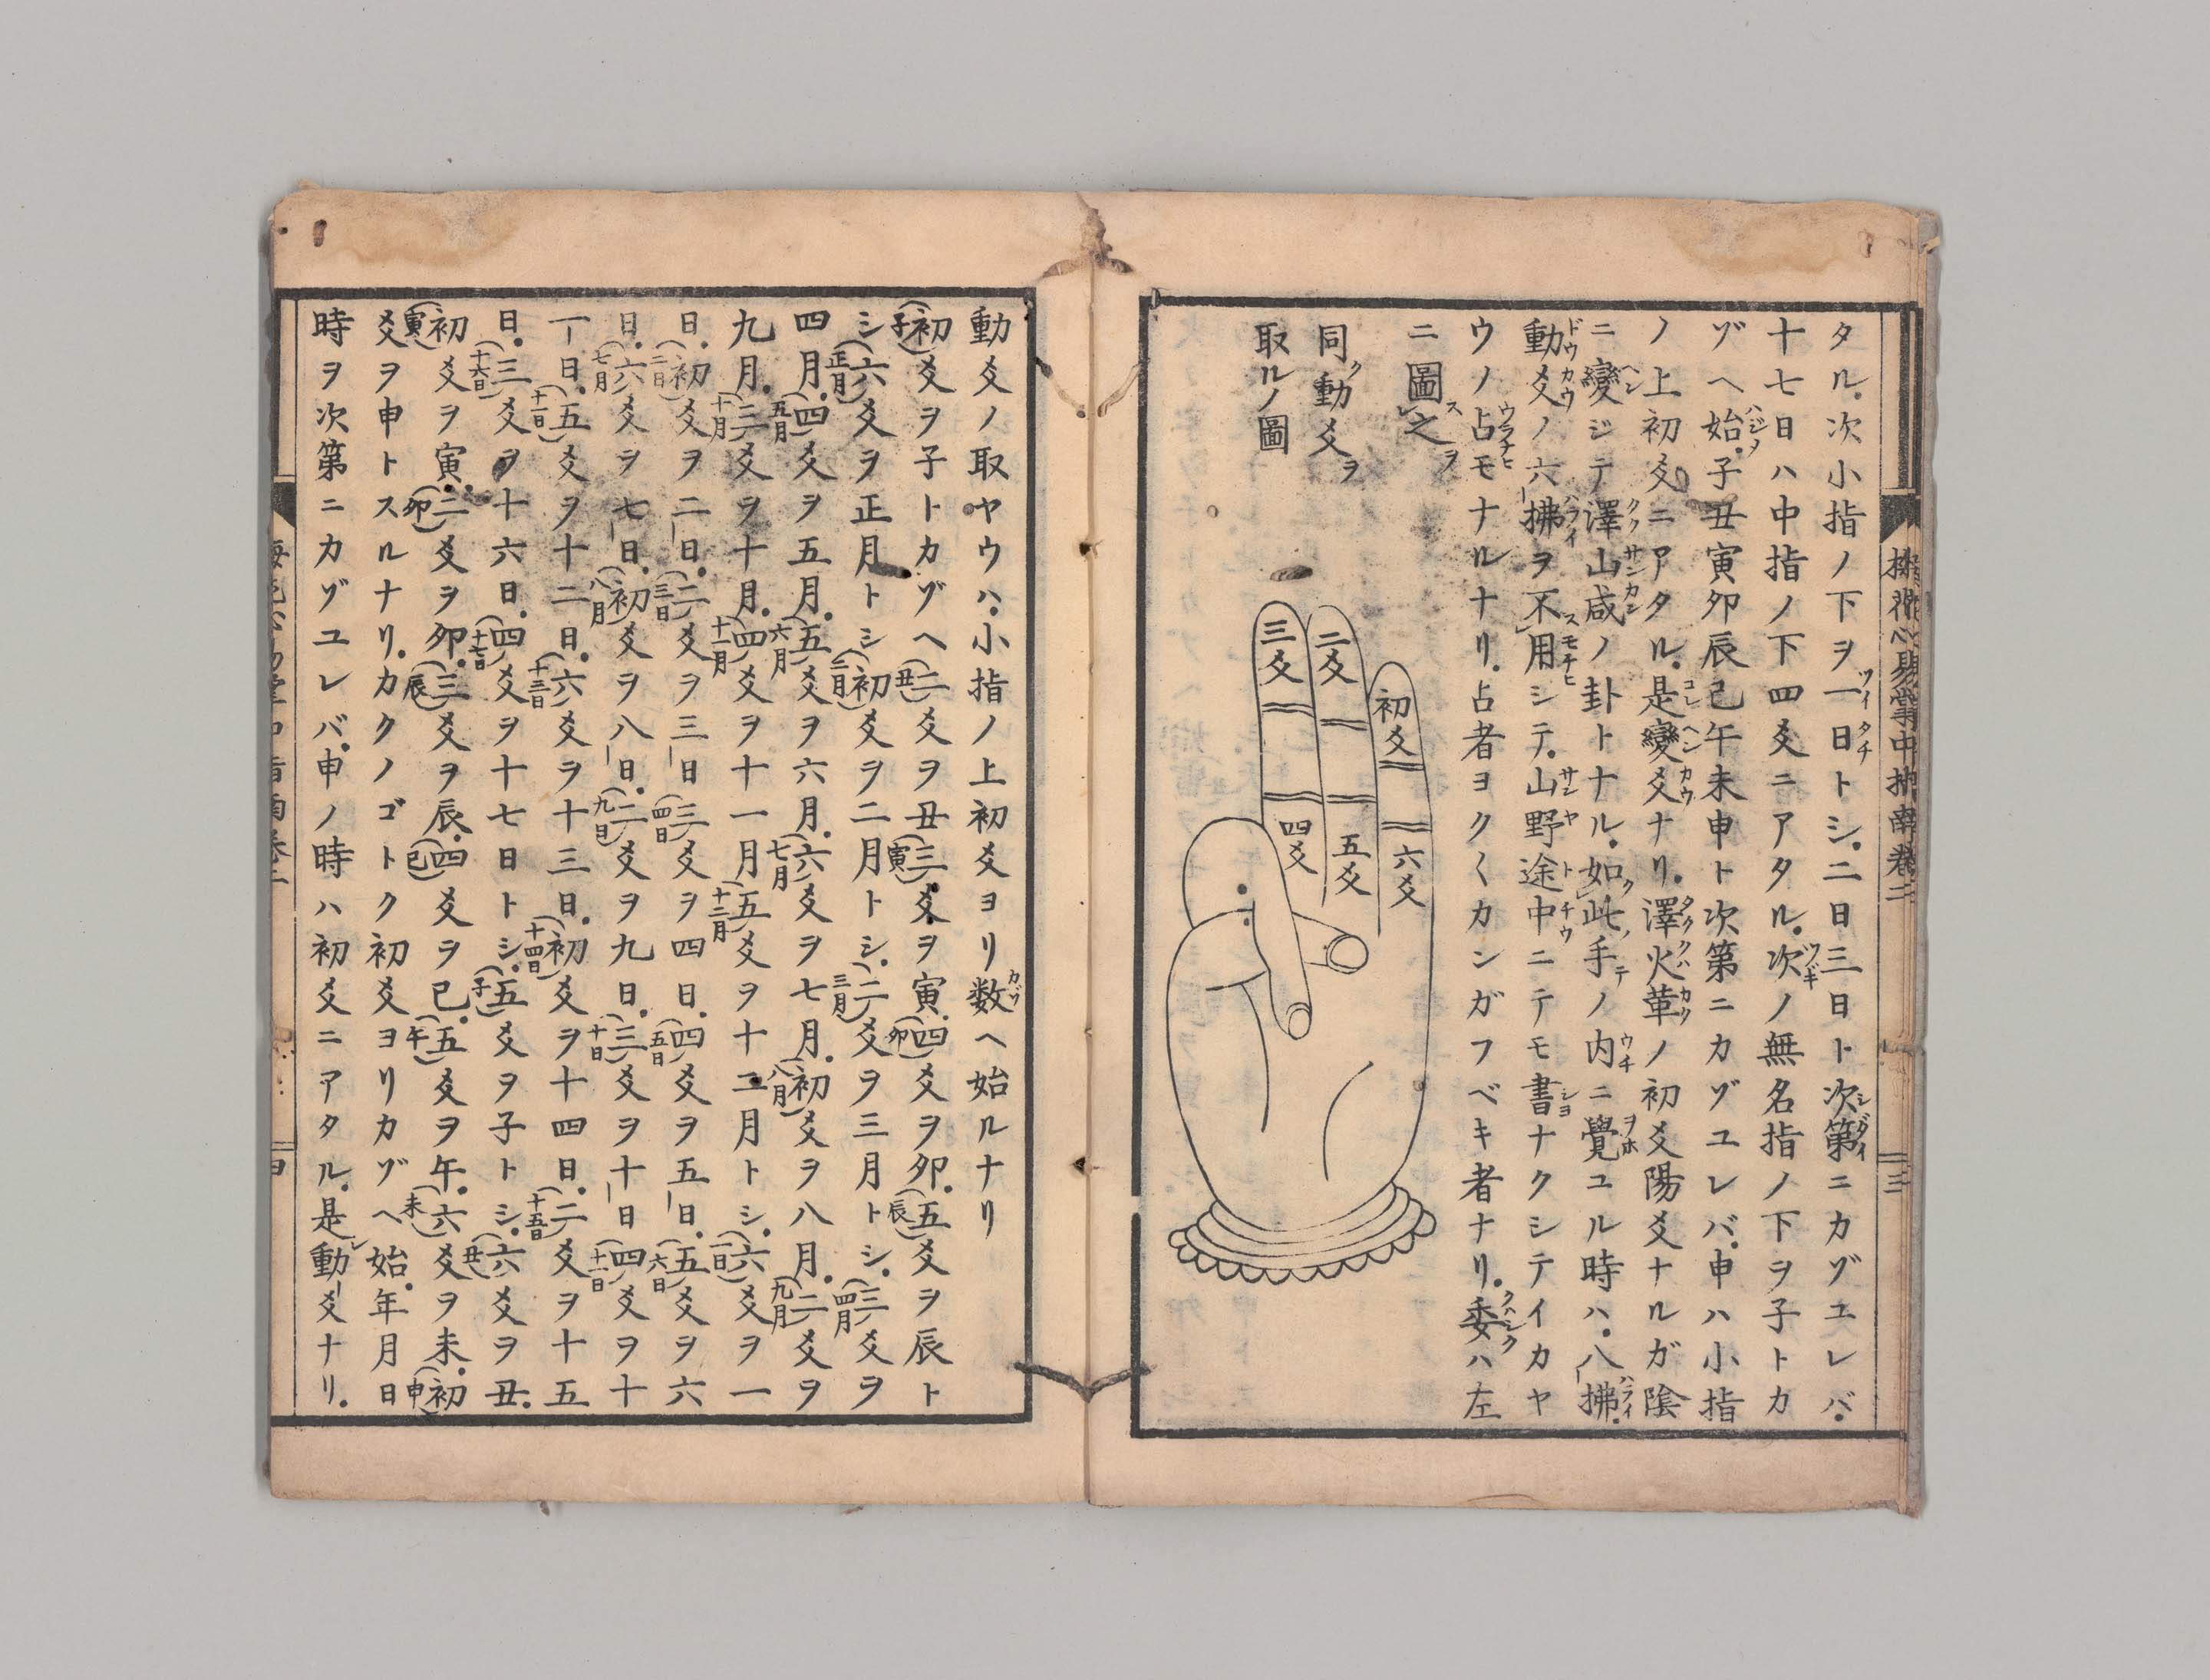 タル次小指ノ下ヲ一日トシ二日三日ト次第ニカゾエレバ
十七日ハ中指ノ下四爻ニアタル次ノ無名指ノ下ヲ子トカ
ゾヘ始子丑寅卯辰巳午未申ト次第ニカゾユレバ申ハ小指
ノ上初爻ニアタル是變爻ナリ澤火革ノ初爻陽爻ナルガ陰
ニ變ジテ澤山咸ノ卦トナル如此手ノ内ニ覺ユル時ハ八拂
動爻ノ六拂ヲ不用シテ山野途中ニテモ書ナクシテイカヤ
ウノ占モナルナリ占者ヨクヽカンガフベキ者ナリ委ハ左
ニ圖之
同動爻
取ルノ圖
初爻
二爻
三爻
四爻
五爻
六爻
三
動爻ノ取ヤウハ小指ノ上初爻ヨリ数ヘ始ルナリ
初爻ヲ子トカゾヘ二爻ヲ丑三爻ヲ寅四爻ヲ卯五爻ヲ辰ト
シ六爻ヲ正月トシ初爻ヲ二月トシ二爻ヲ三月トシ三爻ヲ
四月四爻ヲ五月五爻ヲ六月六爻ヲ七月初爻ヲ八月二爻ヲ
九月三爻ヲ十月四爻ヲ十一月五爻ヲ十二月トシ六爻ヲ一
日初爻ヲ二日二爻ヲ三日三爻ヲ四日四爻ヲ五日五爻ヲ六
日六爻ヲ七日初爻ヲ八日二爻ヲ九日三爻ヲ十日四爻ヲ十
一日五爻ヲ十二日六爻ヲ十三日初爻ヲ十四日二爻ヲ十五
日三爻ヲ十六日四爻ヲ十七日トシ五爻ヲ子トシ六爻ヲ丑
初爻ヲ寅二爻ヲ卯三爻ヲ辰四爻ヲ巳五爻ヲ午六爻ヲ未初
爻ヲ申トスルナリカクノゴトク初爻ヨリカゾヘ始年月日
時ヲ次第ニカゾユレバ申ノ時ハ初爻ニアタル是動爻ナリ